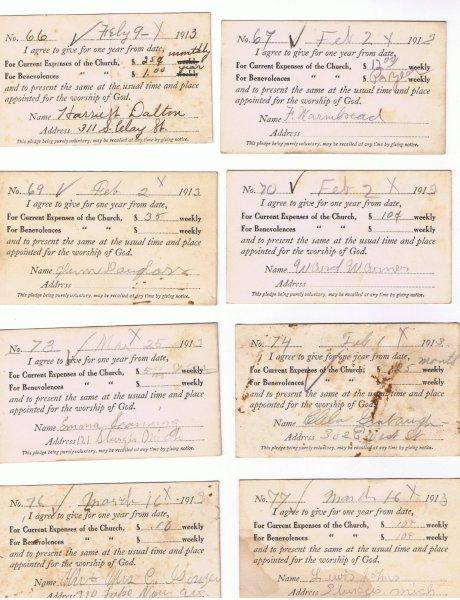 No. 66 Feby 9- X 1913
I agree to give for one year from date, monthly
For Current Expenses of the Church, $ 25¢ weekly
For Benevolences " " $ 1.00 weekly year
and to present the same at the usual time and place
appointed for the worship of God.
Name Harriet Dalton
Address 311 S. Clay St.
This pledge being purely voluntary, may be recalled at any time by giving notice.
No. 67 Feb 2 X 1913
I agree to give for one year from date,
For Current Expenses of the Church, $ weekly
For Benevolences " " $ weekly
and to present the same at the usual time and place
appointed for the worship of God.
Name F. Warmhead
Address
This pledge being purely voluntary, may be recalled at any time by giving notice.
No. 69 Feb 2 X 1913
I agree to give for one year from date,
For Current Expenses of the Church, $ 35 weekly
For Benevolences " " $ weekly
and to present the same at the usual time and place
appointed for the worship of God.
Name
Address
This pledge being purely voluntary, may be recalled at any time by giving notice.
No. 70 Feb 2 X 1913
I agree to give for one year from date,
For Current Expenses of the Church, $ 10¢ weekly
For Benevolences " " $ weekly
and to present the same at the usual time and place
appointed for the worship of God.
Name Ward Warner
Address
This pledge being purely voluntary, may be recalled at any time by giving notice.
No. 73 Mar 25 X 1913
I agree to give for one year from date,
For Current Expenses of the Church, $ 5 weekly
For Benevolences " " $ weekly
and to present the same at the usual time and place
appointed for the worship of God.
Name Emma
Address 121 Sturgis
This pledge being purely voluntary, may be recalled at any time by giving notice.
No. 74 Feb 1 X 1913
I agree to give for one year from date, month
For Current Expenses of the Church, $ 25 weekly
For Benevolences " " $ weekly
and to present the same at the usual time and place
appointed for the worship of God.
Name Ella
Address 302 West St
This pledge being purely voluntary, may be recalled at any time by giving notice.
No. 76 March 16 X 1913
I agree to give for one year from date,
For Current Expenses of the Church, $ weekly
For Benevolences " " $ weekly
and to present the same at the usual time and place
appointed for the worship of God.
Name Mr & Mrs C.
Address
No. 77 March 16 X 1913
I agree to give for one year from date,
For Current Expenses of the Church, $ 10¢ weekly
For Benevolences " " $ 10¢ weekly
and to present the same at the usual time and place
appointed for the worship of God.
Name Lewis
Address Sturgis Mich